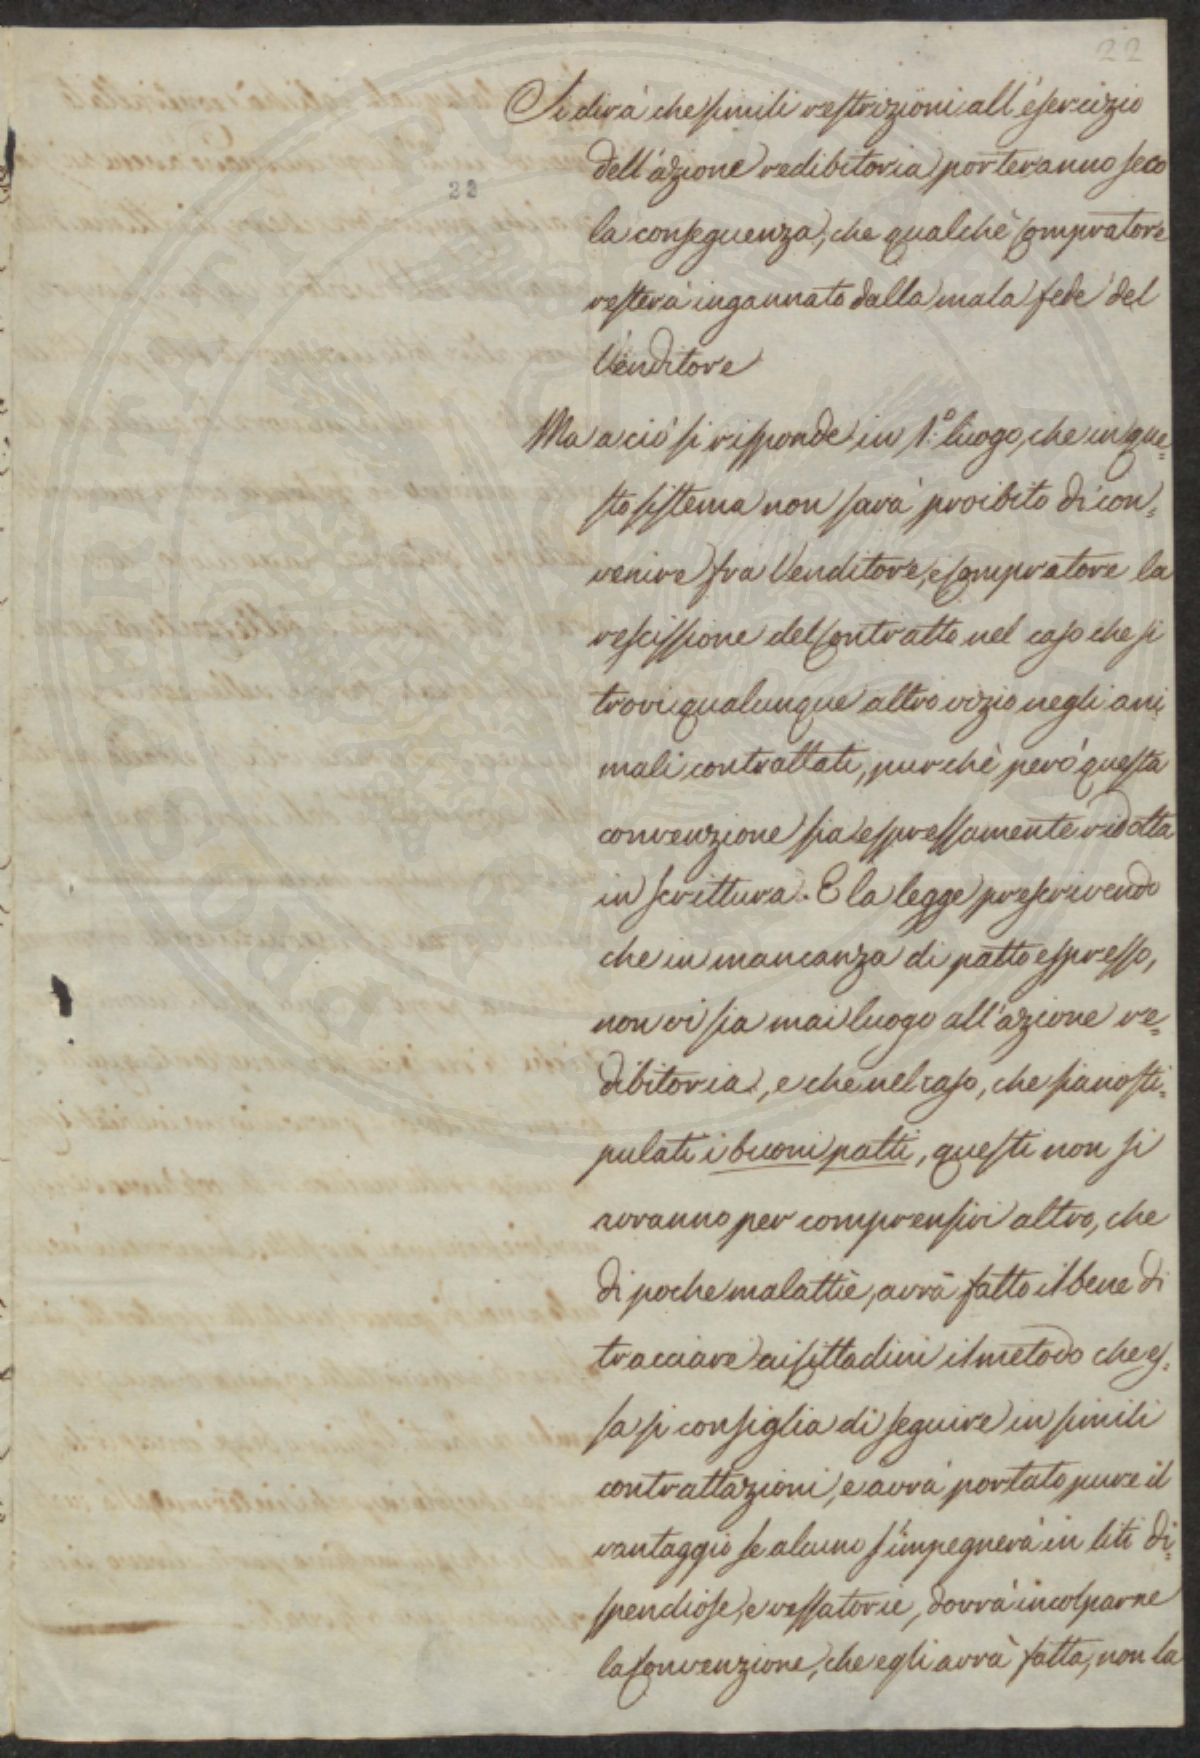 22
22
Si dirà che simili restrizioni all'esercizio
dell'azione redibitoria porteranno seco
la conseguenza, che qualchè Compratore
resterà ingannato dalla mala fede del
Venditore
Ma a ciò si risponde in 1.º luogo, che in que=
sto sistema non sarà proibito di con=
venire fra Venditore, e Compratore la
rescissione del Contratto nel caso che si
trovi qualunque altro vizio negli ani
mali contrattati, purchè però questa
convenzione sia espressamente ridotta
in scrittura. E la legge prescrivendo
che in mancanza di patto espresso,
non vi sia mai luogo all'azione re=
dibitoria, e che nel caso, che siano sti=
pulati i buoni patti, questi non si
avranno per comprensivi altro, che
di poche malattie, avrà fatto il bene di
tracciare ai Cittadini il metodo che es=
sa si consiglia di seguire in simili
contrattazioni, e avrà portato pure il
vantaggio se alcuno s'impegnerà in liti di=
spendiose, e vessatorie, dovrà incolparne
la Convenzione, che egli avrà fatta, non la
PROSPERITATI PUBLICAE